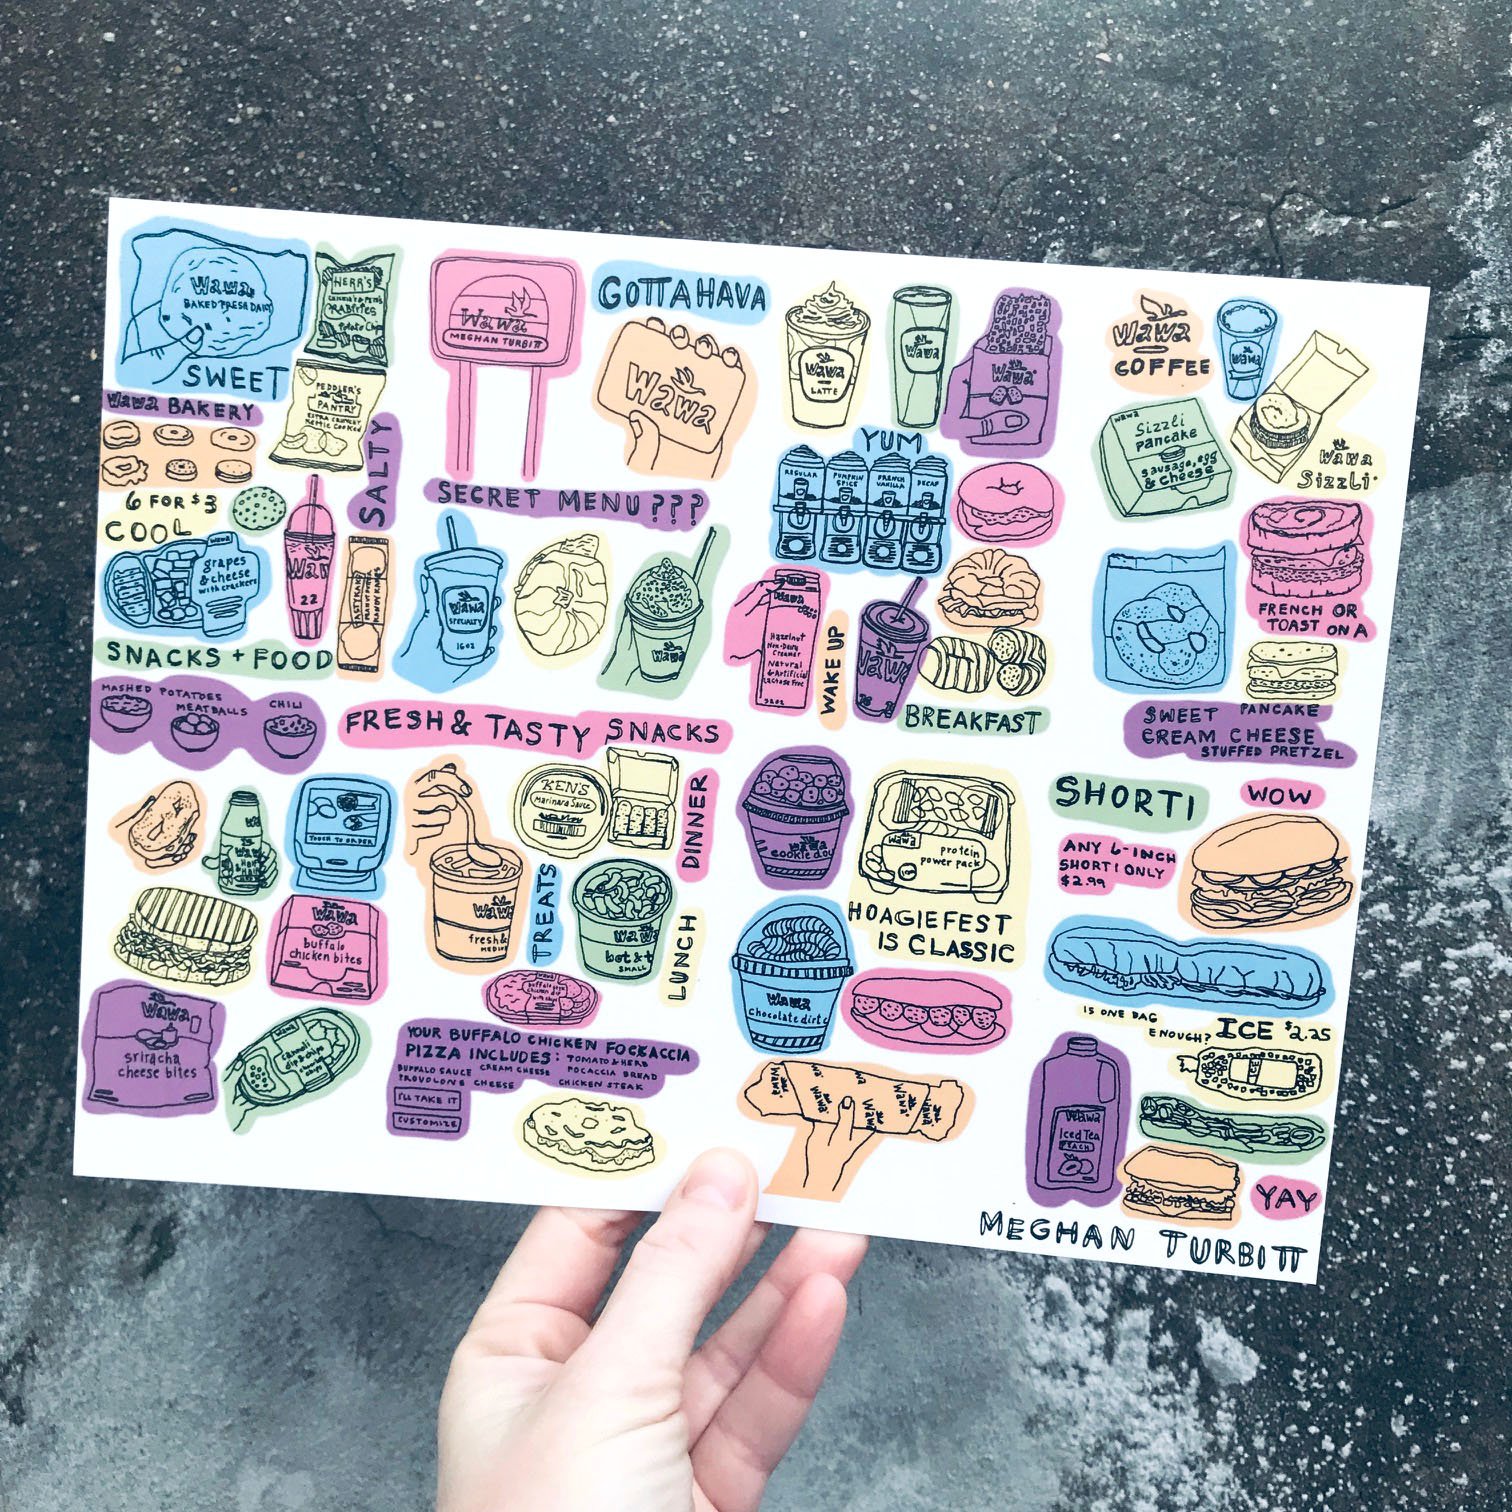 Wawa
BAKED FRESH DAILY
SWEET
HERR'S
Potato Chips
PEDDLER'S
PANTRY
EXTRA CRUNCHY
KETTLE COOKED
SALTY
Wawa BAKERY
6 FOR $3
COOL
wawa
grapes
& cheese
with crackers
22
SNACKS + FOOD
MASHED POTATOES
MEATBALLS
CHILI
Wawa
MEGHAN TURBITT
GOTTAHAVA
Wawa
SECRET MENU???
Wawa
SPECIALTY
16oz
Wawa
FRESH & TASTY SNACKS
Wawa
LATTE
Wawa
Wawa
YUM
REGULAR
PUMPKIN
SPICE
FRENCH
VANILLA
DECAF
Wawa
Hazelnut
Non-Dairy
Creamer
Natural
& Artificial
Lactose Free
32oz
WAKE UP
Wawa
BREAKFAST
Wawa
COFFEE
Wawa
wawa
Sizzli
pancake
sausage, egg
& cheese
Wawa
Sizzli
FRENCH OR
TOAST ON A
SWEET PANCAKE
CREAM CHEESE
STUFFED PRETZEL
TOUCH TO ORDER
Wawa
buffalo
chicken bites
Wawa
sriracha
cheese bites
KENS
Marinara Sauce
DINNER
Wawa
fresh &
MEDIUM
TREATS
Wawa
hot & t
SMALL
LUNCH
YOUR BUFFALO CHICKEN FOCKACCIA
PIZZA INCLUDES: TOMATO & HERB
BUFFALO SAUCE CREAM CHEESE FOCACCIA BREAD
PROVOLONE CHEESE CHICKEN STEAK
I'LL TAKE IT
CUSTOMIZE
wawa
cookie dou
wawa
protein
power pack
HOAGIEFEST
IS CLASSIC
Wawa
chocolate dirt c
Wawa
Wawa
Wawa
SHORTI
WOW
ANY 6-INCH
SHORTI ONLY
$2.99
IS ONE BAG
ENOUGH?
ICE $2.25
ICE
Wawa
Iced Tea
PEACH
YAY
MEGHAN TURBITT